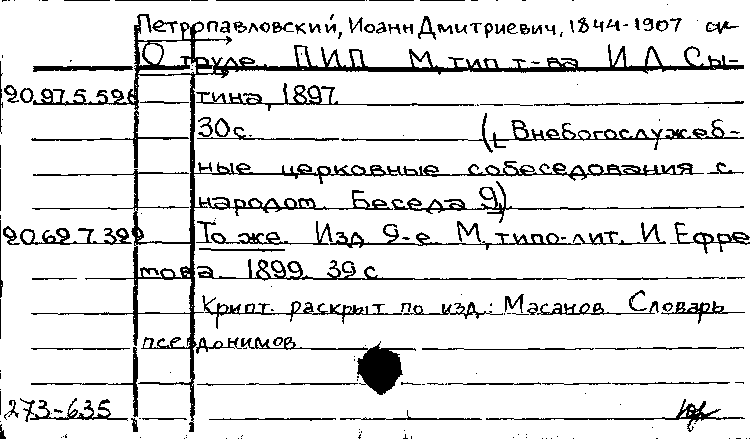 Петропавловский, Иоанн Дмитриевич, 1844-1907
О труде. П.И.П. М., тип. т-ва И. Д. Сы-
20.97.5.526 тина, 1897.
30 с. (Внебогослужеб-
ные церковные собеседования с
народом. Беседа 9)
20.62.7.392 То же. Изд. 9-е. М., типо-лит. И. Ефре
мова. 1899. 39 с.
Крипт. раскрыт по изд.: Масанов. Словарь
псевдонимов
273-635